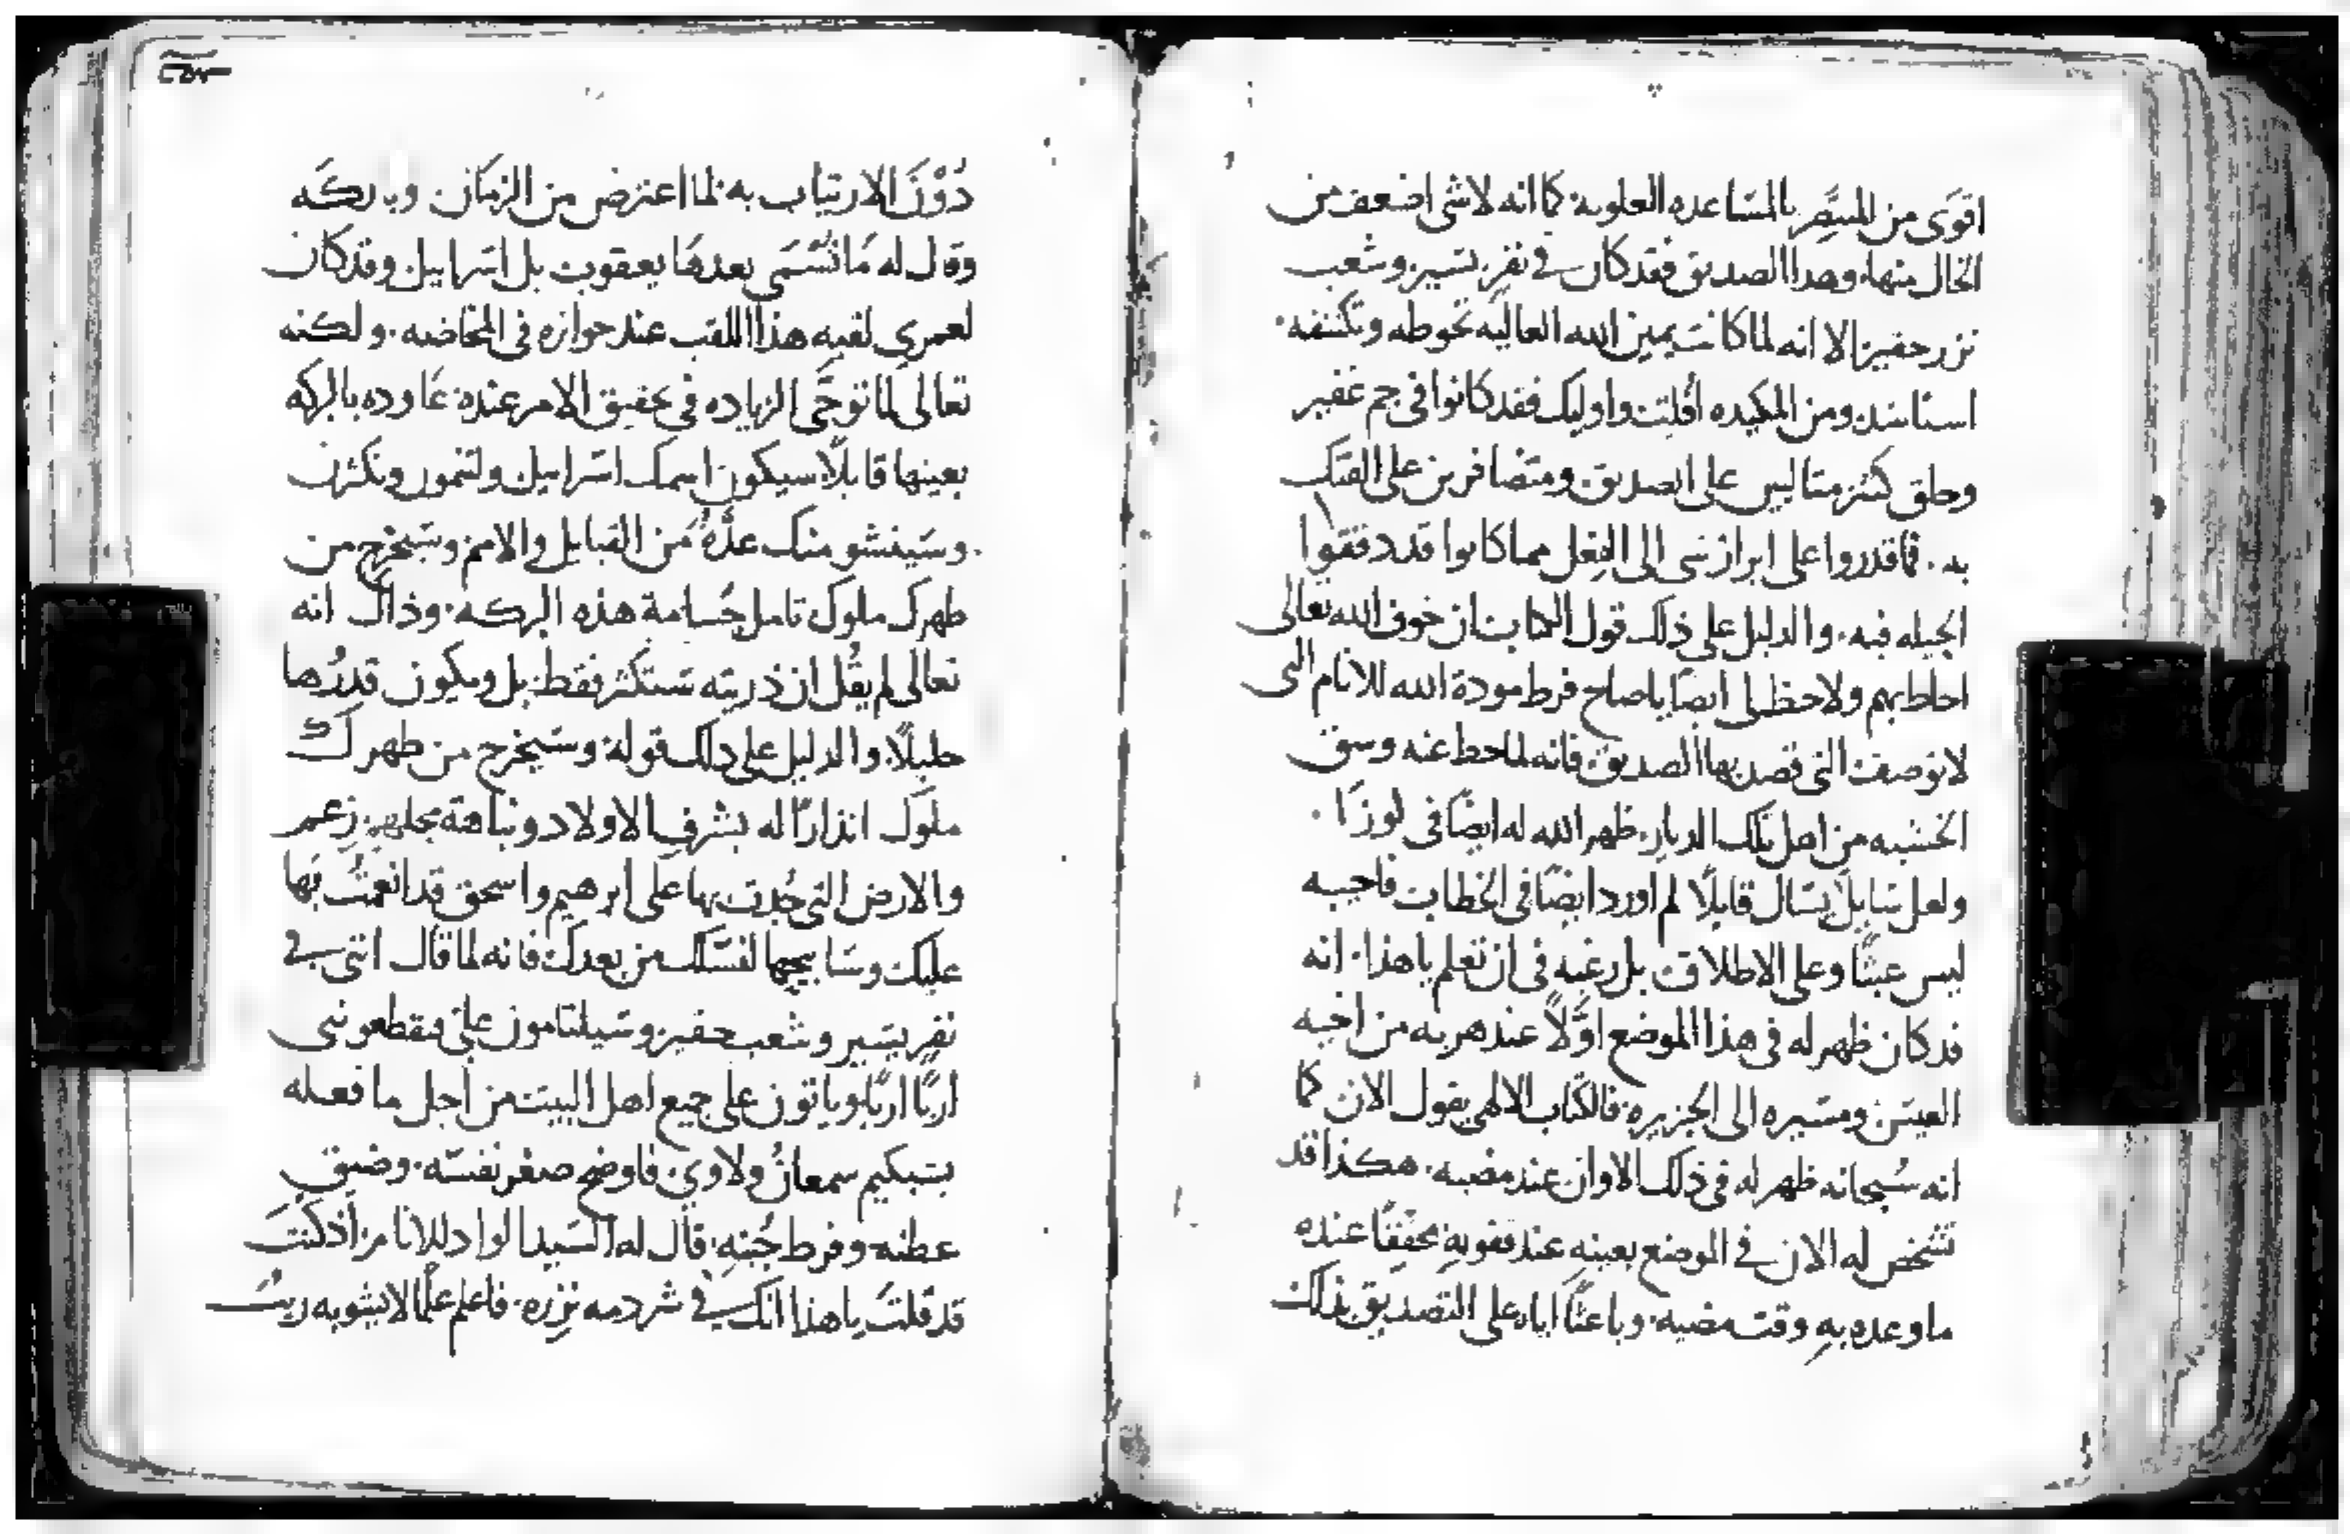 اقوى من المتيسر بالمساعده العلويه كما انه لا شى اضعف من
الخال منها. وهدا الصديق فقد كان في نفر يسير وشعب
نزر حقير الا انه لما كانت يمين الله العاليه تحوطه وتكنفه.
استاسد ومن المكيده افلت واوليك فقد كانوا في جم غفير
وخلق كثير متالبين على الصديق ومتضافرين على الفتك
به. فما قدروا على ابراز شى الى الفعل مما كانوا قد دققوا
الحيله فيه. والدليل على ذلك قول الكتاب ان خوف الله تعالى
احاط بهم ولاحظ لى ايضًا ياصاح فرط مودة الله للانام التى
لا توصف التى قصد بها الصديق فانه لما حط عنه وسق
الخشيه من اهل تلك الديار. ظهر الله له ايضًا فى لوزا.
ولعل سَايلًا يسَال قايلًا لم اورد ايضًا فى الخطاب فاجيبه
ليس عبثًا وعلى الاطلاق بل رغبه فى ان تعلم ياهذا. انه
قد كان ظهر له فى هذا الموضع اوًلًا عند هربه من اخيه
العيس ومسيره الى الجزيره فالكتاب الالهى يقول الان كما
انه سُبحانه ظهر له فى ذلك الاوان عند مضيه. هكذا قد
تشخص له الان في الموضع بعينه عند قفوله محققًا عنده
ما وعده به وقت مضيه. وباعثًا اياه على التصديق بذلك
دُوْنَ الارتياب به لما اعترض من الزمَان وباركَه
وقال له مَا تُسَمى بعدهَا يعقوب بل اسَراييل وقد كان
لعمري لقبه هذا اللقب عند جوازه فى المخاضه. ولكنه
تعالى لما توخَّى الزياده فى تحقيق الامر عنده عَاوده بالبركه
بعينها قايلًا سيكون اسمك اسَراييل ولتنمون وتكثرن
وسَيفشو منك عدَّةٌ مَن القبايل والامم وسَيخرج من
ظهرك ملوك تامل جُسَامة هذه البركه. وذاك انه
تعالى لم يقُل ان ذريته سَتكثر فقط بل ويكون قدرُها
جليلًا. والدليل على ذلك قوله وسَيخرج من ظهرك
ملوك انذارًا له بشرف الاولاد ونباهة نجلهم. زعم
والارض التى جُدت بها عَلى ابرهيم واسحق قد انعمتُ بها
عليك وسَابيحها لنفسَك من بعدك فانه لما قال اننى في
نفر يسَير وشعب حقير وسَيلتامون علىّ ويقطعوننى
اربًا اربًا وياتون على جميع اهل البيت من اجل ما فعله
بسَكيم سمعانُ ولاوي. فاوضح صغر نفسَه. وضيق
عطنه وفرط جُبنه. قال له السَيد الوادد للانام. اذ كنت
قد قلتَ ياهذا انك في شرذمه نزره. فاعلم علمًا لا يشوبه ريبٌ